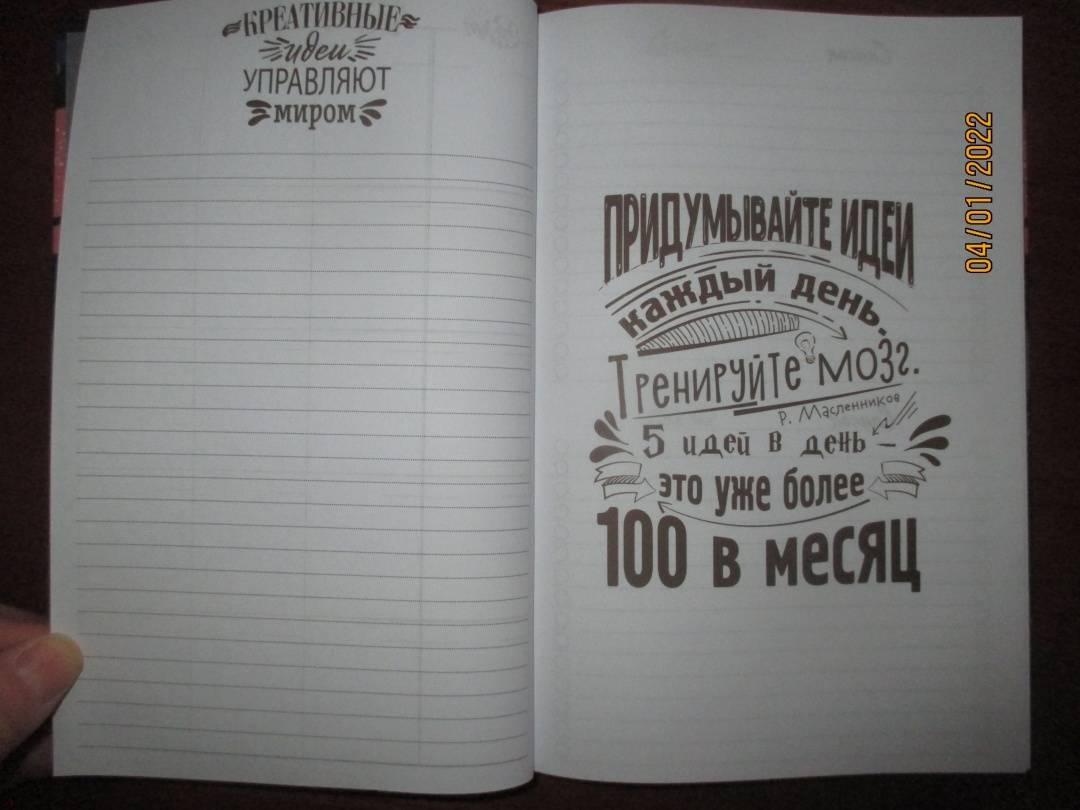 КРЕАТИВНЫЕ
идеи
УПРАВЛЯЮТ
миром
ПРИДУМЫВАЙТЕ ИДЕИ
каждый день.
Тренируйте мозг.
Р. Масленников
5 идей в день –
это уже более
100 в месяц
04/01/2022